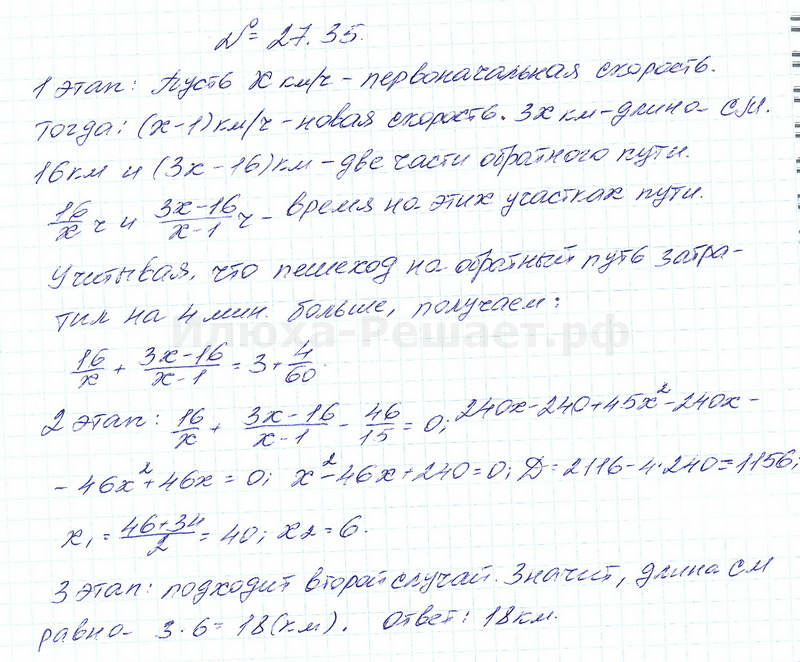 № = 27.35.
1 этап: Пусть x км/ч - первоначальная скорость.
Тогда: (x-1) км/ч - новая скорость. 3x км - длина СМ.
16 км и (3x-16) км - две части обратного пути.
16/x ч и (3x-16)/(x-1) ч - время на этих участках пути.
Учитывая, что пешеход на обратный путь затра-
тил на 4 мин. больше, получаем:
Илюха-Решает.рф
16/x + (3x-16)/(x-1) = 3 + 4/60.
2 этап: 16/x + (3x-16)/(x-1) - 46/15 = 0; 240x-240+45x²-240x-
-46x²+46x = 0; x²-46x+240=0; D=2116-4·240=1156;
x₁ = (46+34)/2 = 40; x₂ = 6.
3 этап: подходит второй случай. Значит, длина СМ
равна 3·6=18 (км). Ответ: 18 км.